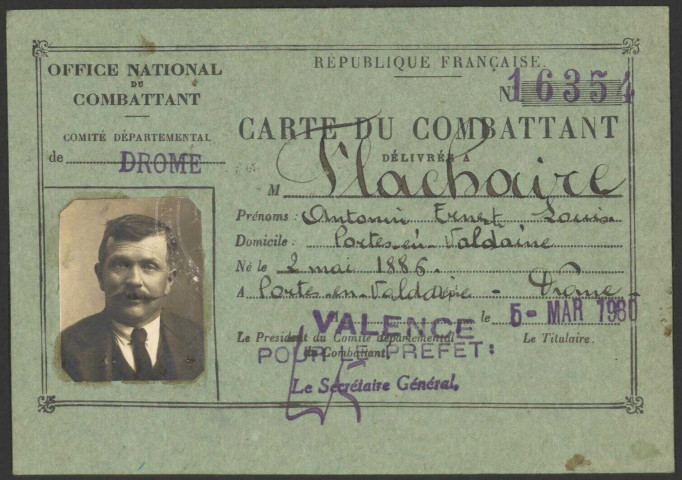 OFFICE NATIONAL
DU
COMBATTANT
COMITÉ DÉPARTEMENTAL
de DROME
RÉPUBLIQUE FRANÇAISE.
N° 16354
CARTE DU COMBATTANT
DÉLIVRÉE A
M Flachaire
Prénoms : Antonin Ernest Louis
Domicile : Portes-en-Valdaine
Né le 2 mai 1886.
A Portes-en-Valdaine - Drôme
VALENCE le 5 - MAR 1930
Le Président du Comité départemental
du Combattant,
Le Titulaire.
POUR LE PREFET:
Le Secrétaire Général,